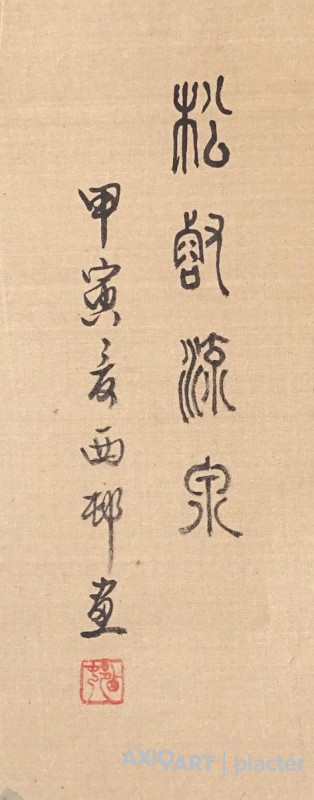 松壑流泉
甲寅夏西邨畫
AXIOART | piactér